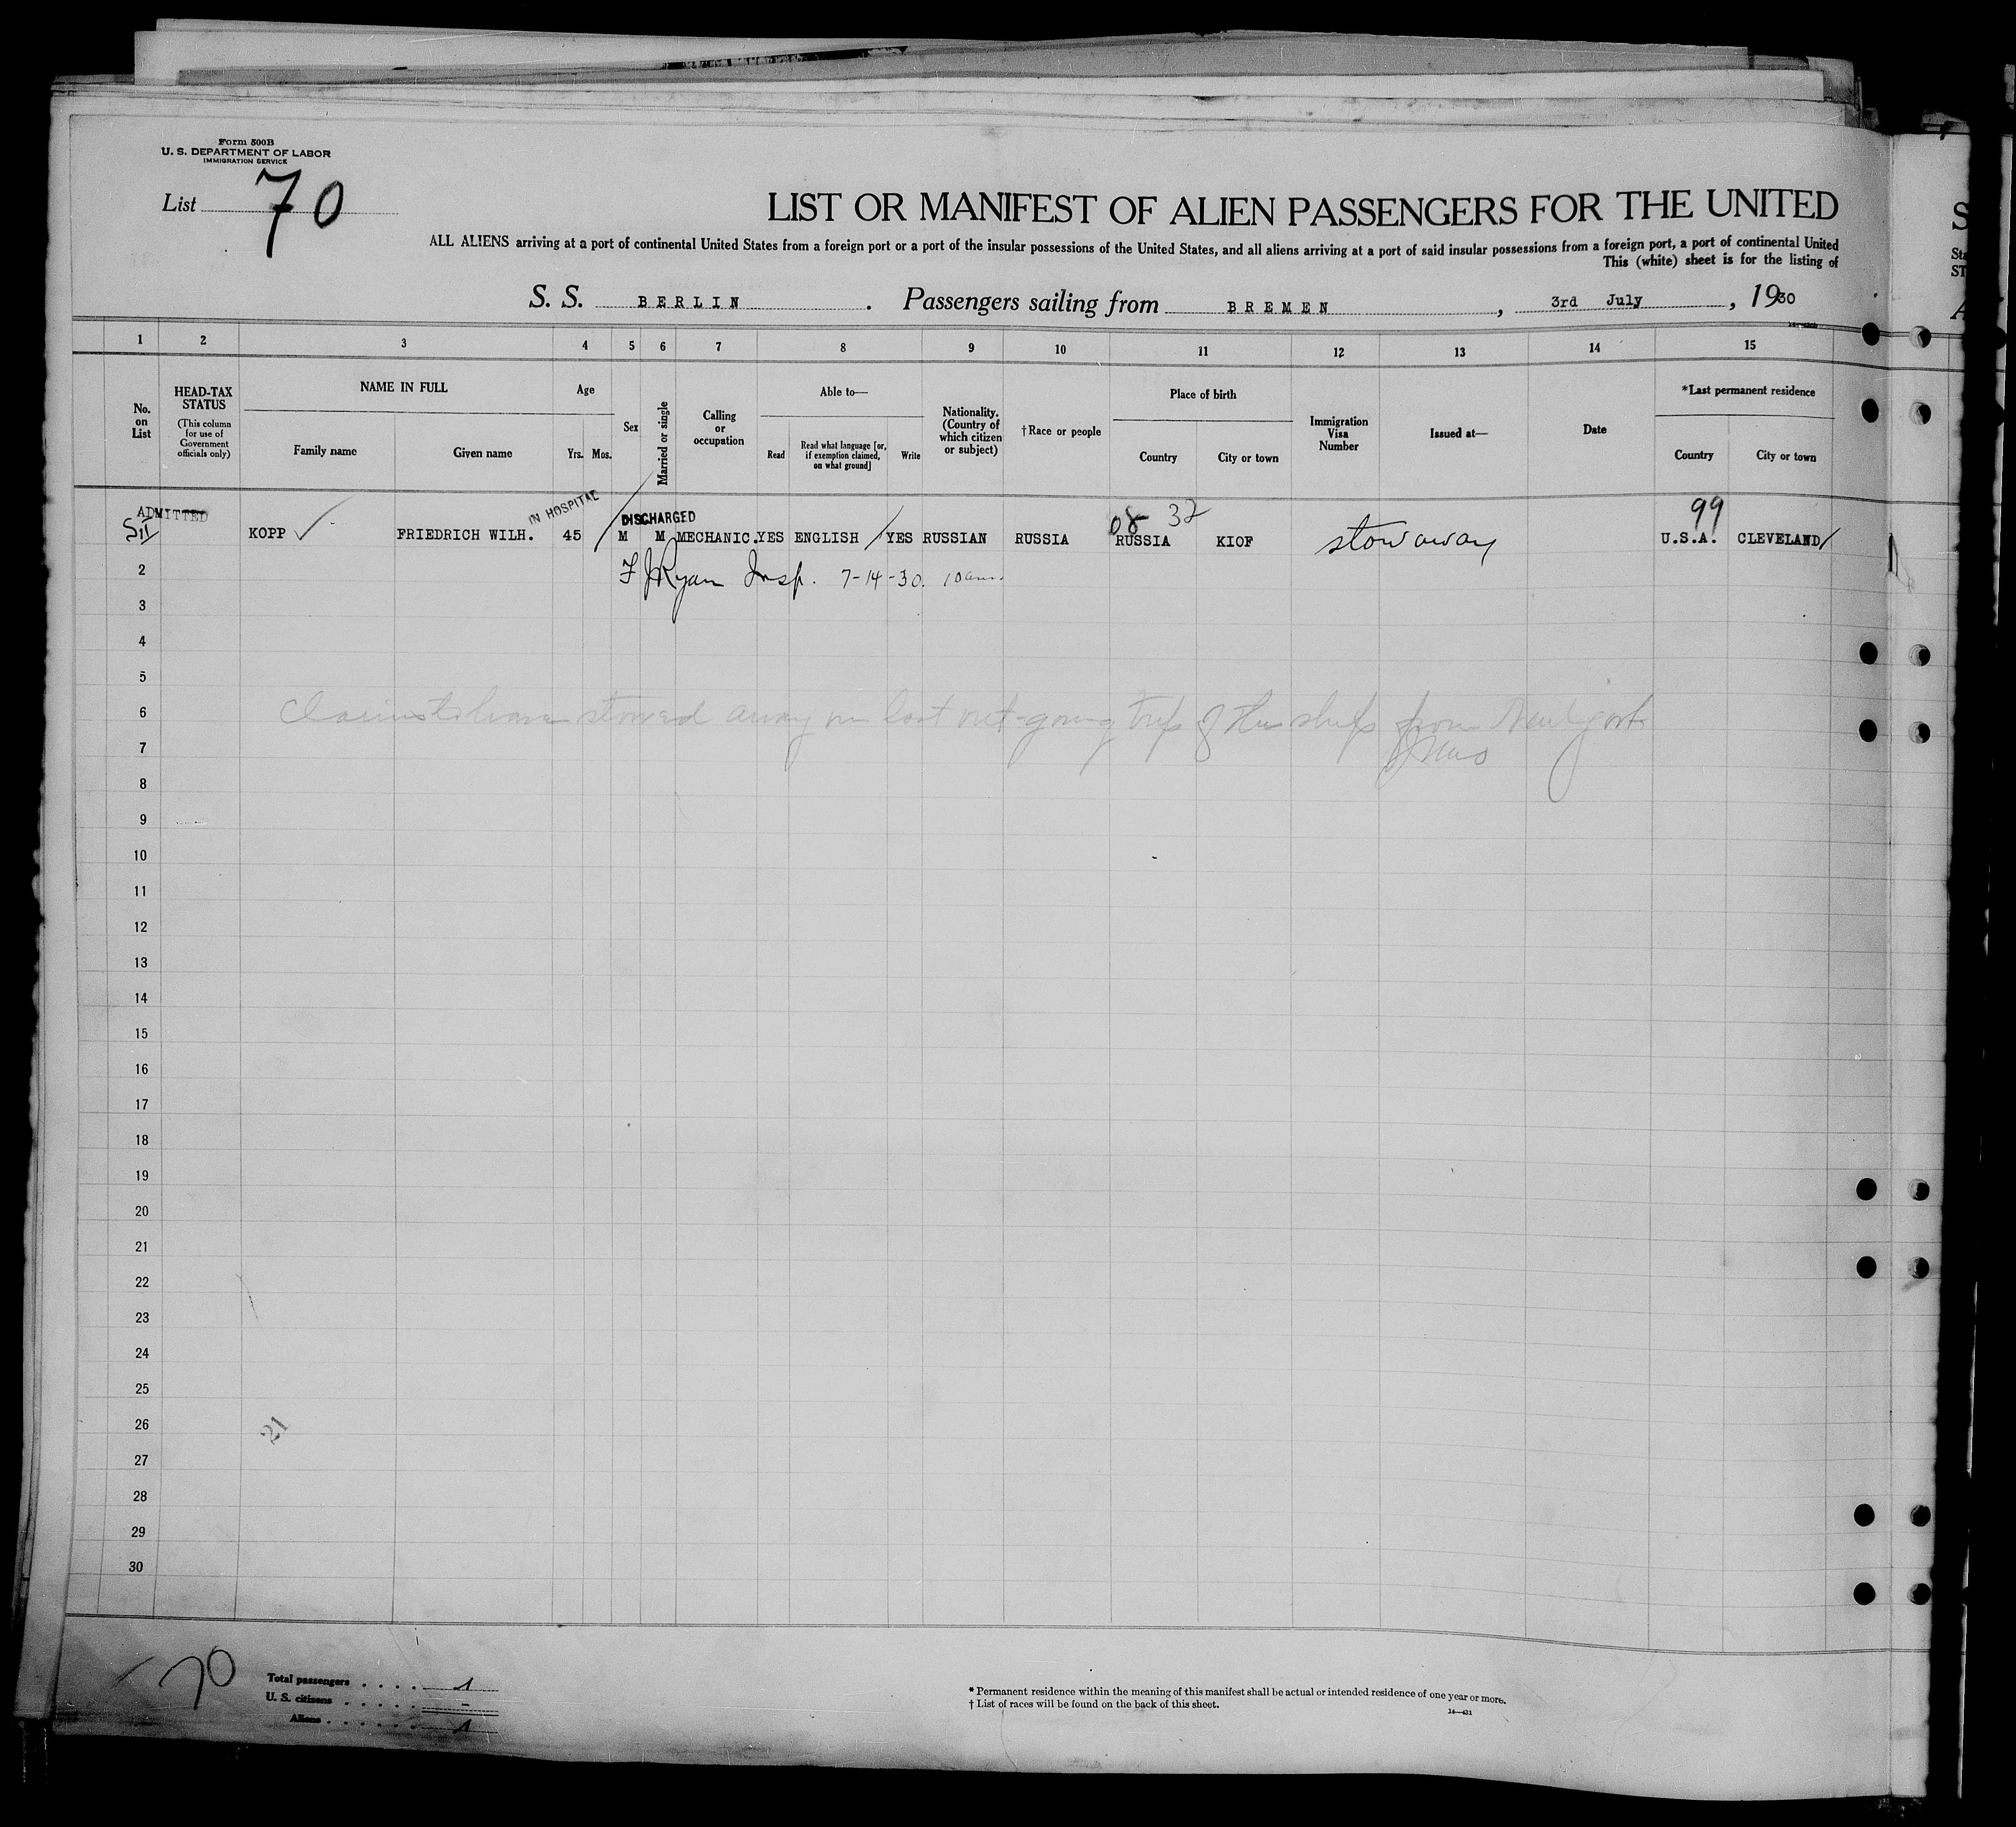 Form 500B
U. S. DEPARTMENT OF LABOR
IMMIGRATION SERVICE
List 70
LIST OR MANIFEST OF ALIEN PASSENGERS FOR THE UNITED
ALL ALIENS arriving at a port of continental United States from a foreign port or a port of the insular possessions of the United States, and all aliens arriving at a port of said insular possessions from a foreign port, a port of continental United
This (white) sheet is for the listing of
S. S. BERLIN. Passengers sailing from BREMEN, 3rd July, 1930
1 2 3 4 5 6 7 8 9 10 11 12 13 14 15
No. on List
HEAD-TAX STATUS
(This column for use of Government officials only)
NAME IN FULL
Family name
Given name
Age
Yrs. Mos.
Sex
Married or single
Calling or occupation
Able to—
Read
Read what language [or, if exemption claimed, on what ground]
Write
Nationality. (Country of which citizen or subject)
†Race or people
Place of birth
Country
City or town
Immigration Visa Number
Issued at—
Date
*Last permanent residence
Country
City or town
ADMITTED
IN HOSPITAL
DISCHARGED
08 32
99
SII KOPP FRIEDRICH WILH. 45 M M MECHANIC. YES ENGLISH YES RUSSIAN RUSSIA RUSSIA KIOF stowaway U.S.A. CLEVELAND
F J Ryan Insp. 7-14-30. 10am.
2
3
4
5
6 Claims to have stowed away on last out-going trip of this ship from New York
7
8
9
10
11
12
13
14
15
16
17
18
19
20
21
22
23
24
25
26
21
27
28
29
30
70
Total passengers . . . . 1
U. S. citizens . . . . . -
Aliens . . . . . . 1
* Permanent residence within the meaning of this manifest shall be actual or intended residence of one year or more.
† List of races will be found on the back of this sheet.